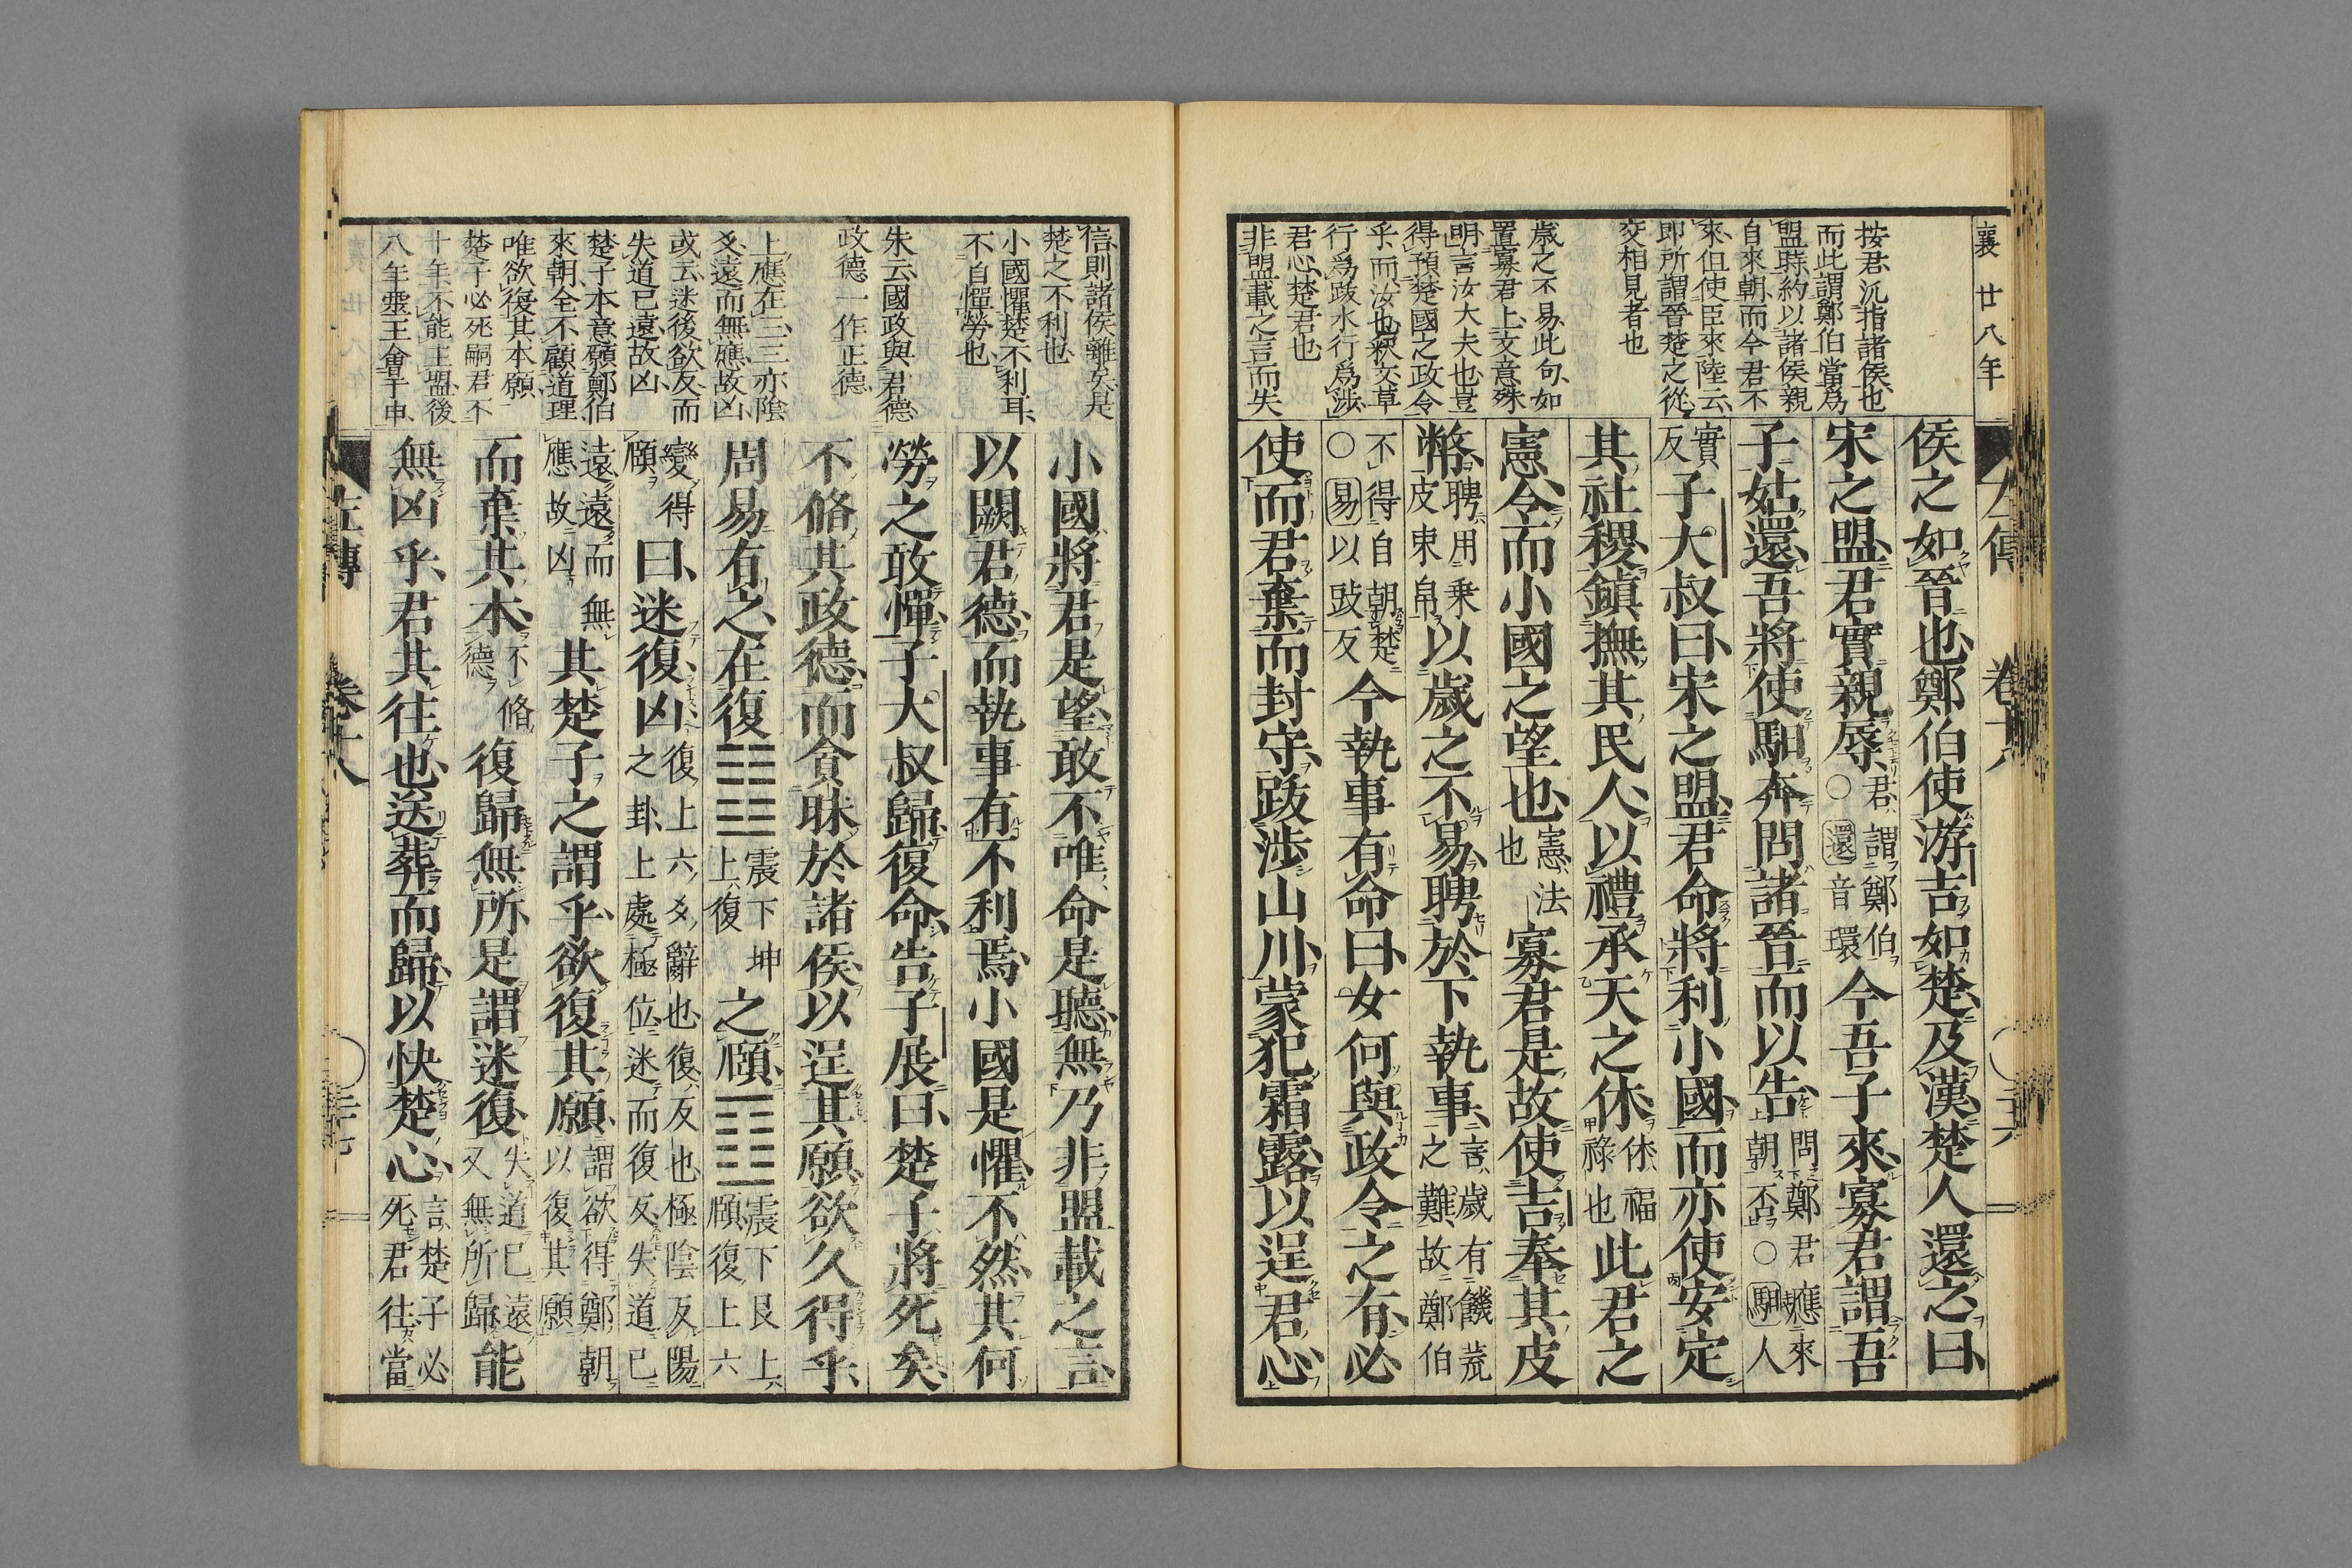 襄 廿八年
按君沉指諸侯也
而此謂鄭伯當爲
盟時約以諸侯親
自來朝而今君不
來但使臣來陸云
即所謂晉楚之從
交相見者也
歳之不易此句如
置寡君上文意殊
明言汝大夫也豈
得預楚國之政令
乎而汝也釈文草
行爲跋水行爲涉
君心楚君也
非盟載之言而失
侯之如晉也鄭伯使游吉如楚及漢楚人還之曰
宋之盟君實親辱君謂鄭伯○還音環今吾子來寡君謂吾
子姑還吾將使馹奔問諸晉而以告問鄭君應來朝否○馹人
實反子大叔曰宋之盟君命將利小國而亦使安定
其社稷鎭撫其民人以禮承天之休休福祿也此君之
憲令而小國之望也憲法也寡君是故使吉奉其皮
幣聘用乘皮束帛以歲之不易聘於下執事言歲有饑荒之難故鄭伯
不得自朝楚○易以豉反今執事有命曰女何與政令之有必
使而君棄而封守跋涉山川蒙犯霜露以逞君心
信則諸侯離矣是
楚之不利也
小國懼楚不利耳
不自憚勞也
朱云國政與君德
政德一作正德
上應在三三亦陰
爻遠而無應故凶
或云迷後欲反而
失道已遠故凶
楚子本意願鄭伯
來朝全不顧道理
唯欲復其本願
楚子必死嗣君不
十年不能主盟後
八年靈王會于申
小國將君是望敢不唯命是聽無乃非盟載之言
以闕君德而執事有不利焉小國是懼不然其何
勞之敢憚子大叔歸復命告子展曰楚子將死矣
不脩其政德而貪昧於諸侯以逞其願欲久得乎
周易有之在復䷗震下坤上復之頤䷚震下艮上頤復上六
變得頤曰迷復凶復上六爻辭也復反也極陰反陽之卦上處極位迷而復反失道已
遠遠而無應故凶其楚子之謂乎欲復其願謂欲得鄭朝以復其願
而棄其本不脩德復歸無所是謂迷復失道已遠又無所歸能
無凶乎君其往也送葬而歸以快楚心言楚子必死君往當
左傳 卷十八 三十七